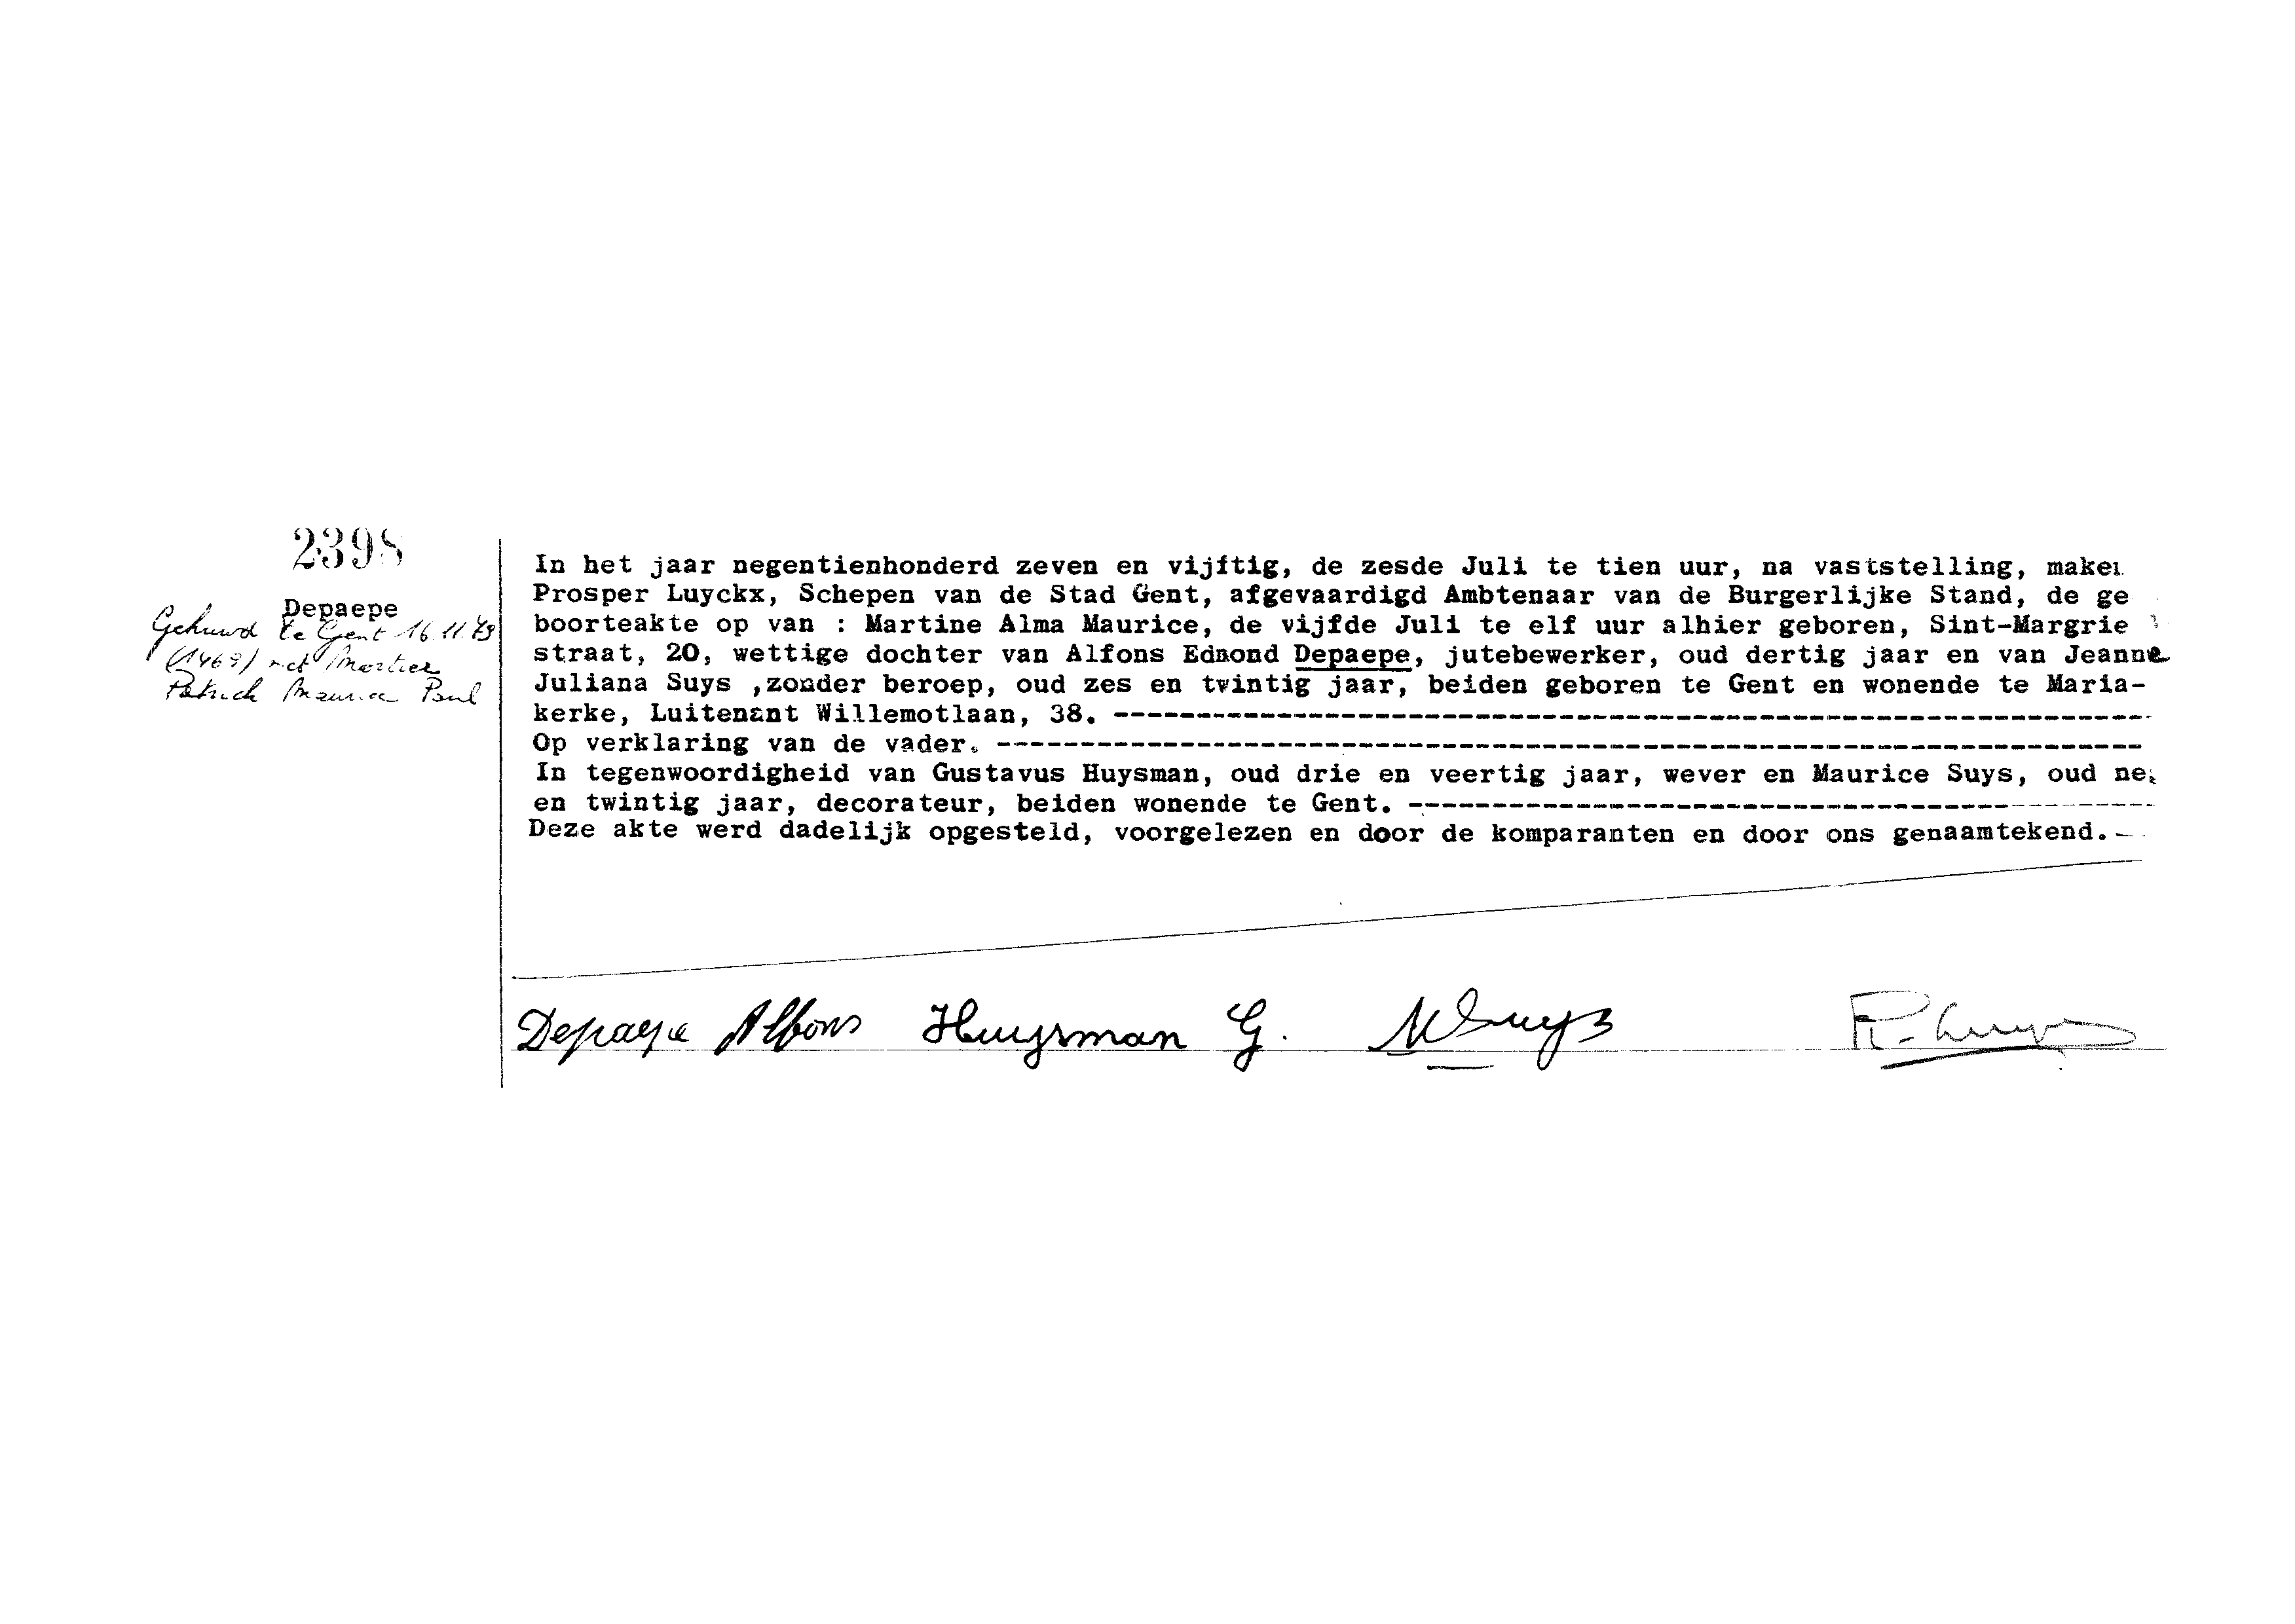 2398
Depaepe
Gehuwd te Gent 16.11.79
(1469) met Mortier
Patrick Maurice Paul
In het jaar negentienhonderd zeven en vijftig, de zesde Juli te tien uur, na vaststelling, maken
Prosper Luyckx, Schepen van de Stad Gent, afgevaardigd Ambtenaar van de Burgerlijke Stand, de ge
boorteakte op van : Martine Alma Maurice, de vijfde Juli te elf uur alhier geboren, Sint-Margrie
straat, 20, wettige dochter van Alfons Edmond Depaepe, jutebewerker, oud dertig jaar en van Jeanne
Juliana Suys ,zonder beroep, oud zes en twintig jaar, beiden geboren te Gent en wonende te Maria-
kerke, Luitenant Willemotlaan, 38. ----------
Op verklaring van de vader. ----------
In tegenwoordigheid van Gustavus Huysman, oud drie en veertig jaar, wever en Maurice Suys, oud ne
en twintig jaar, decorateur, beiden wonende te Gent. ----------
Deze akte werd dadelijk opgesteld, voorgelezen en door de komparanten en door ons genaamtekend.-
Depaepe Alfons Huysman G. M Suys